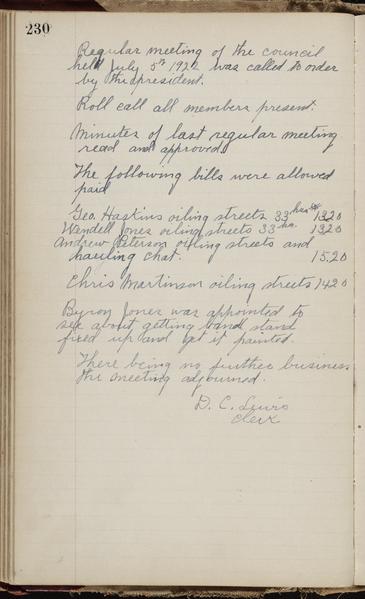 230
Regular meeting of the council
held July 5th 1922 was called to order
by the president.
Roll call all members present.
Minutes of last regular meeting
read and approved
The following bills were allowed
paid
Geo. Haskins oiling streets 33 hrs 13.20
Wendell Jones oiling streets 33 hrs. 13.20
Andrew Peterson oiling streets and
hauling chat. 15.20
Chris Martinson oiling streets 14.20
Byron Jones was appointed to
see about getting band stand
fixed up and get it painted.
There being no further business
the meeting adjourned.
D. C. Lewis
Clerk